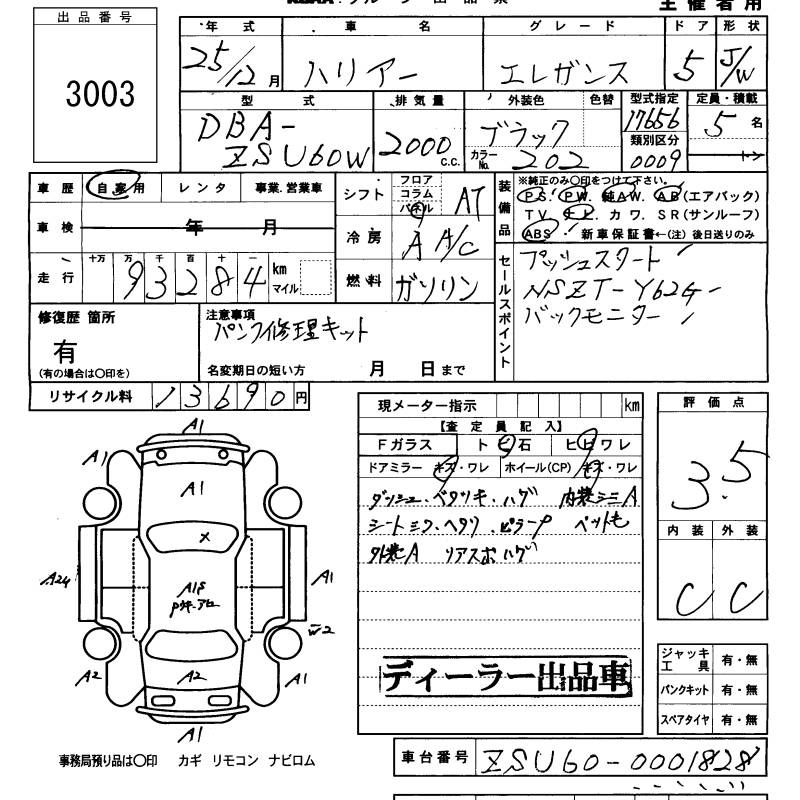 主催者用
出品番号
3003
年式 車名 グレード ドア 形状
25/12月 ハリアー エレガンス 5 J/W
型式 排気量 外装色 色替 型式指定 定員・積載
DBA-ZSU60W 2000 c.c. ブラック カラーNo. 202 17656 5名
類別区分
0009 トン
車歴 自家用 レンタ 事業.営業車
車検 年 月
走行 十万 万 千 百 十 一 km マイル
93284
シフト フロア コラム パネル AT
冷房 A A/C
燃料 ガソリン
装備品 ※純正のみ〇印をつけて下さい。
PS. PW. 純AW. AB(エアバック)
TV. ナビ. カワ. SR(サンルーフ)
ABS 新車保証書←(注) 後日送りのみ
セールスポイント
プッシュスタート
NSZT-Y62G
バックモニター
修復歴 箇所
有
(有の場合は〇印を)
注意事項
パンク修理キット
名変期日の短い方 月 日まで
リサイクル料 13690円
現メーター指示 km
【査定員記入】
Fガラス トビ石 ヒビワレ
ドアミラー キズ・ワレ ホイール(CP) キズ・ワレ
ダッシュ・ベタツキ・ハゲ 内装シミA
シート ヘタリ ピラー ペット毛
外装A リアスポハゲ
ディーラー出品車
評価点
3.5
内装 外装
C C
ジャッキ工具 有・無
パンクキット 有・無
スペアタイヤ 有・無
A1
A1
A1
X
A24
A1
W2
A2
A2
A1
A1
事務局預り品は〇印 カギ リモコン ナビロム
車台番号 ZSU60-0001828